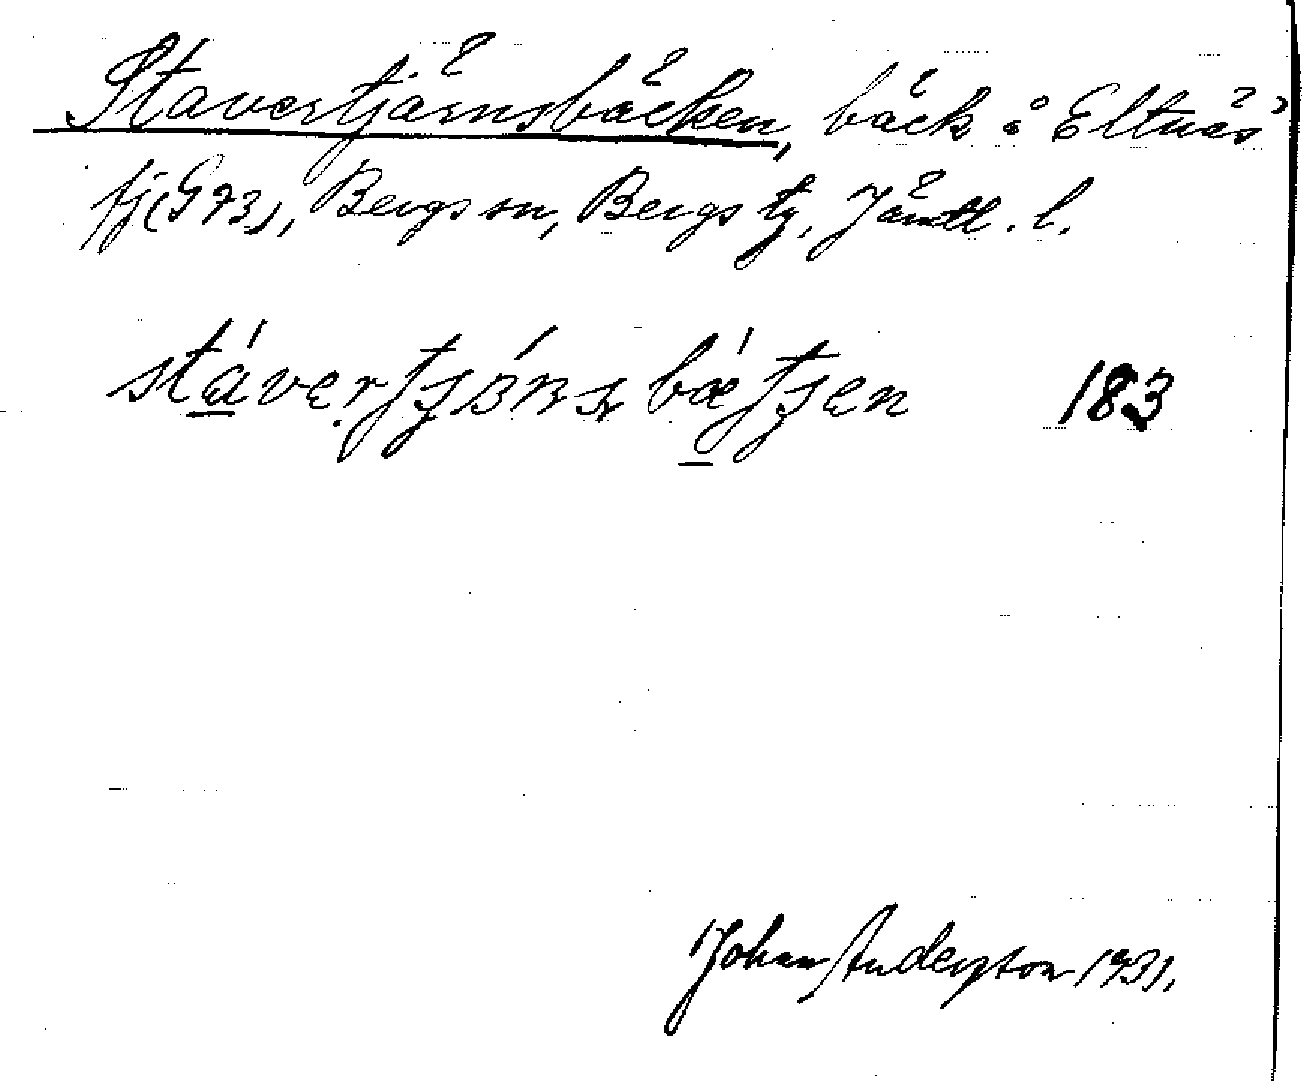 Stavertjärnsbäcken, bäck å Eltnäs
fj (G 93), Bergs sn, Bergs tg. Jämtl. l.
183
Johan Andersson 1931.